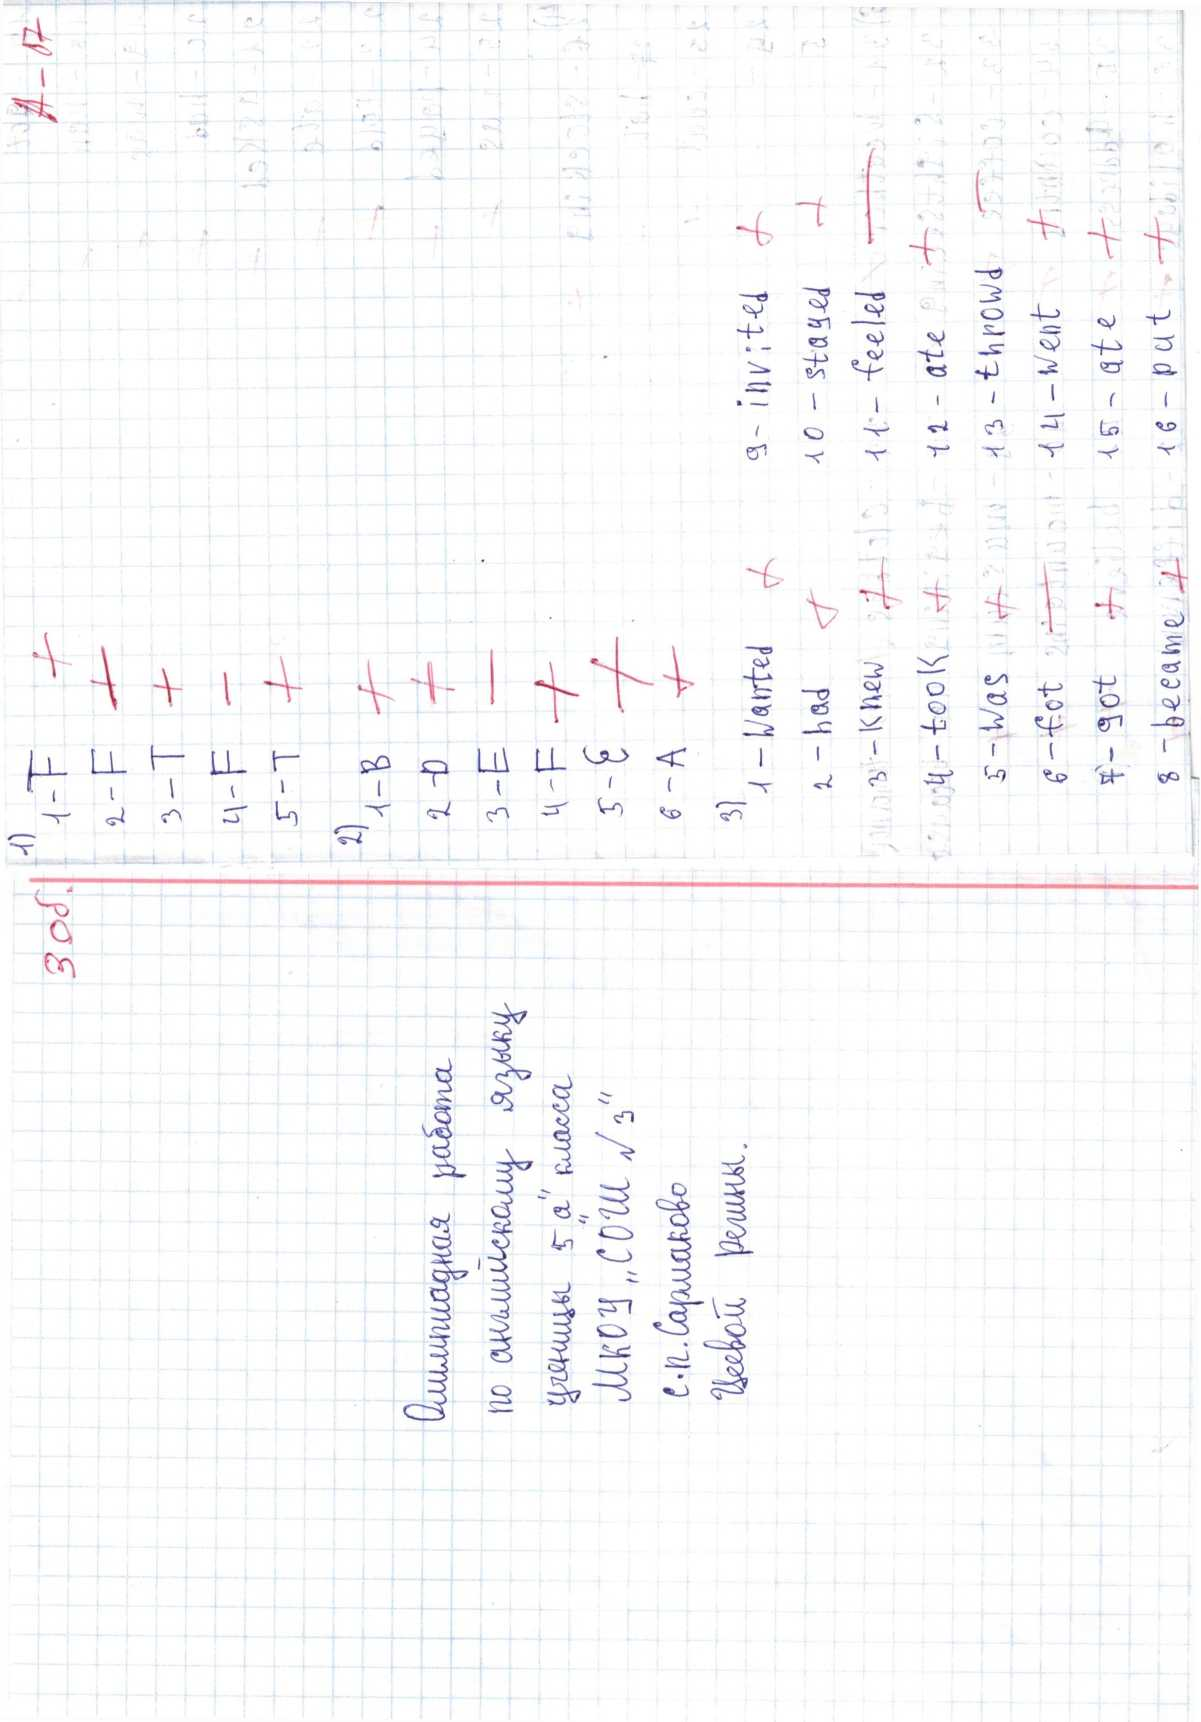 30б.
Олимпиадная работа
по английскому языку
ученицы 5 "а" класса
МКОУ „СОШ №3"
с.п. Сармаково
Цеевой Регины.
1)
1-F +
2-F +
3-T +
4-F -
5-T +
2)
1-B +
2-D +
3-E -
4-F +
5-C +
6-A +
3)
1-wanted +
2-had +
3-knew +
4-took +
5-was +
6-fot -
7-got +
8-became +
9-invited +
10-stayed +
11-feeled -
12-ate +
13-throwd -
14-went +
15-ate +
16-put +